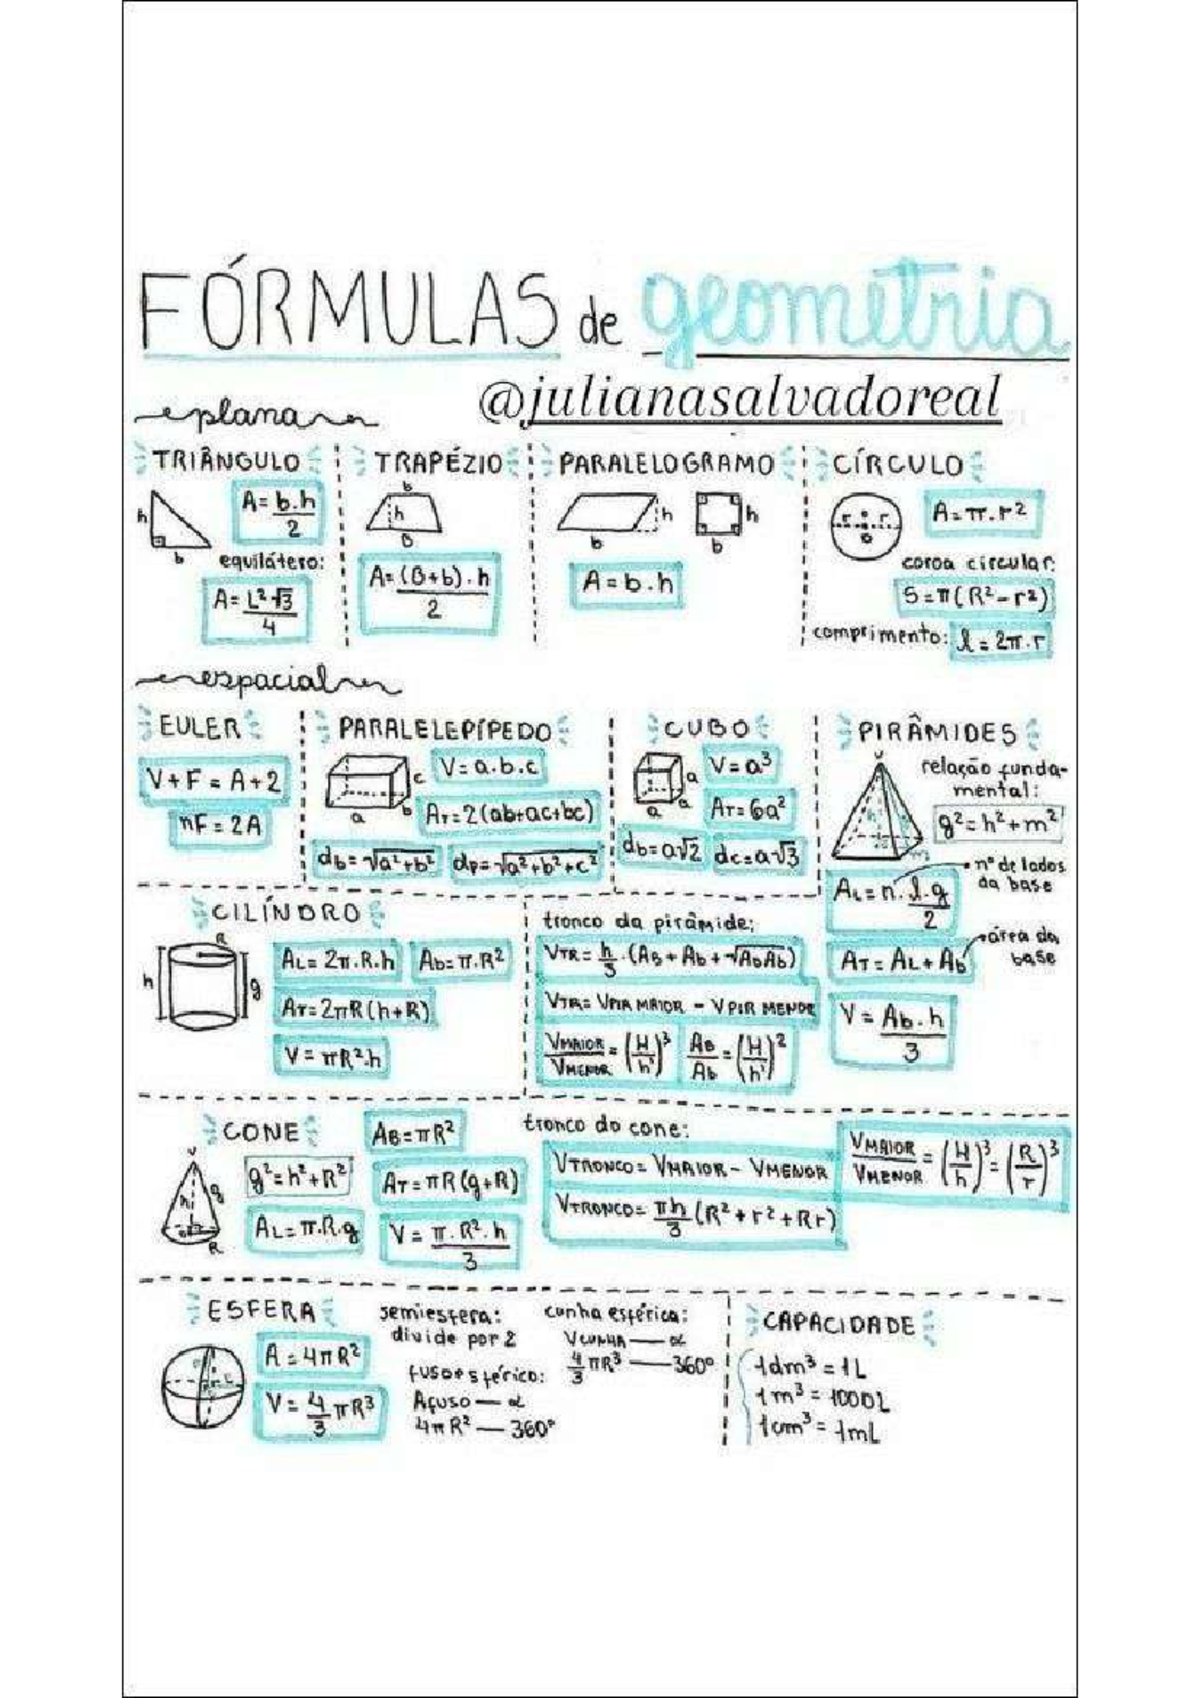 FÓRMULAS de geometria
@julianasalvadoreal
plana
TRIÂNGULO
h
b
A = b.h / 2
equilátero:
A = L²√3 / 4
TRAPÉZIO
b
h
B
A = (B+b).h / 2
PARALELOGRAMO
h
b
h
b
A = b.h
CÍRCULO
r r
A = π.r²
coroa circular:
S = π(R² - r²)
comprimento: l = 2π.r
espacial
EULER
V + F = A + 2
nF = 2A
PARALELEPÍPEDO
c
b
a
V = a.b.c
AT = 2(ab+ac+bc)
db = √a²+b² dp = √a²+b²+c²
CUBO
a
a
a
V = a³
AT = 6a²
db = a√2 dc = a√3
PIRÂMIDES
V
relação funda-
mental:
h
m
g² = h² + m²
nº de lados
da base
AL = n. l.g / 2
área da
base
AT = AL + Ab
V = Ab.h / 3
CILÍNDRO
R
h
g
AL = 2π.R.h Ab = π.R²
AT = 2πR(h+R)
V = πR².h
tronco da pirâmide:
VTR = h/3 . (AB + Ab + √ABAb)
VTR = VPIR MAIOR - VPIR MENOR
VMAIOR / VMENOR = (H/h)³ AB / Ab = (H/h)²
CONE
V
h
g
R
g² = h² + R²
AL = π.R.g
AB = πR²
AT = πR(g+R)
V = π.R².h / 3
tronco do cone:
VTRONCO = VMAIOR - VMENOR
VTRONCO = πh/3 (R² + r² + Rr)
VMAIOR / VMENOR = (H/h)³ = (R/r)³
ESFERA
A = 4πR²
V = 4/3 πR³
semiesfera:
divide por 2
fuso esférico:
Afuso — α
4πR² — 360°
cunha esférica:
VCUNHA — α
4/3 πR³ — 360°
CAPACIDADE
1dm³ = 1L
1m³ = 1000L
1cm³ = 1mL